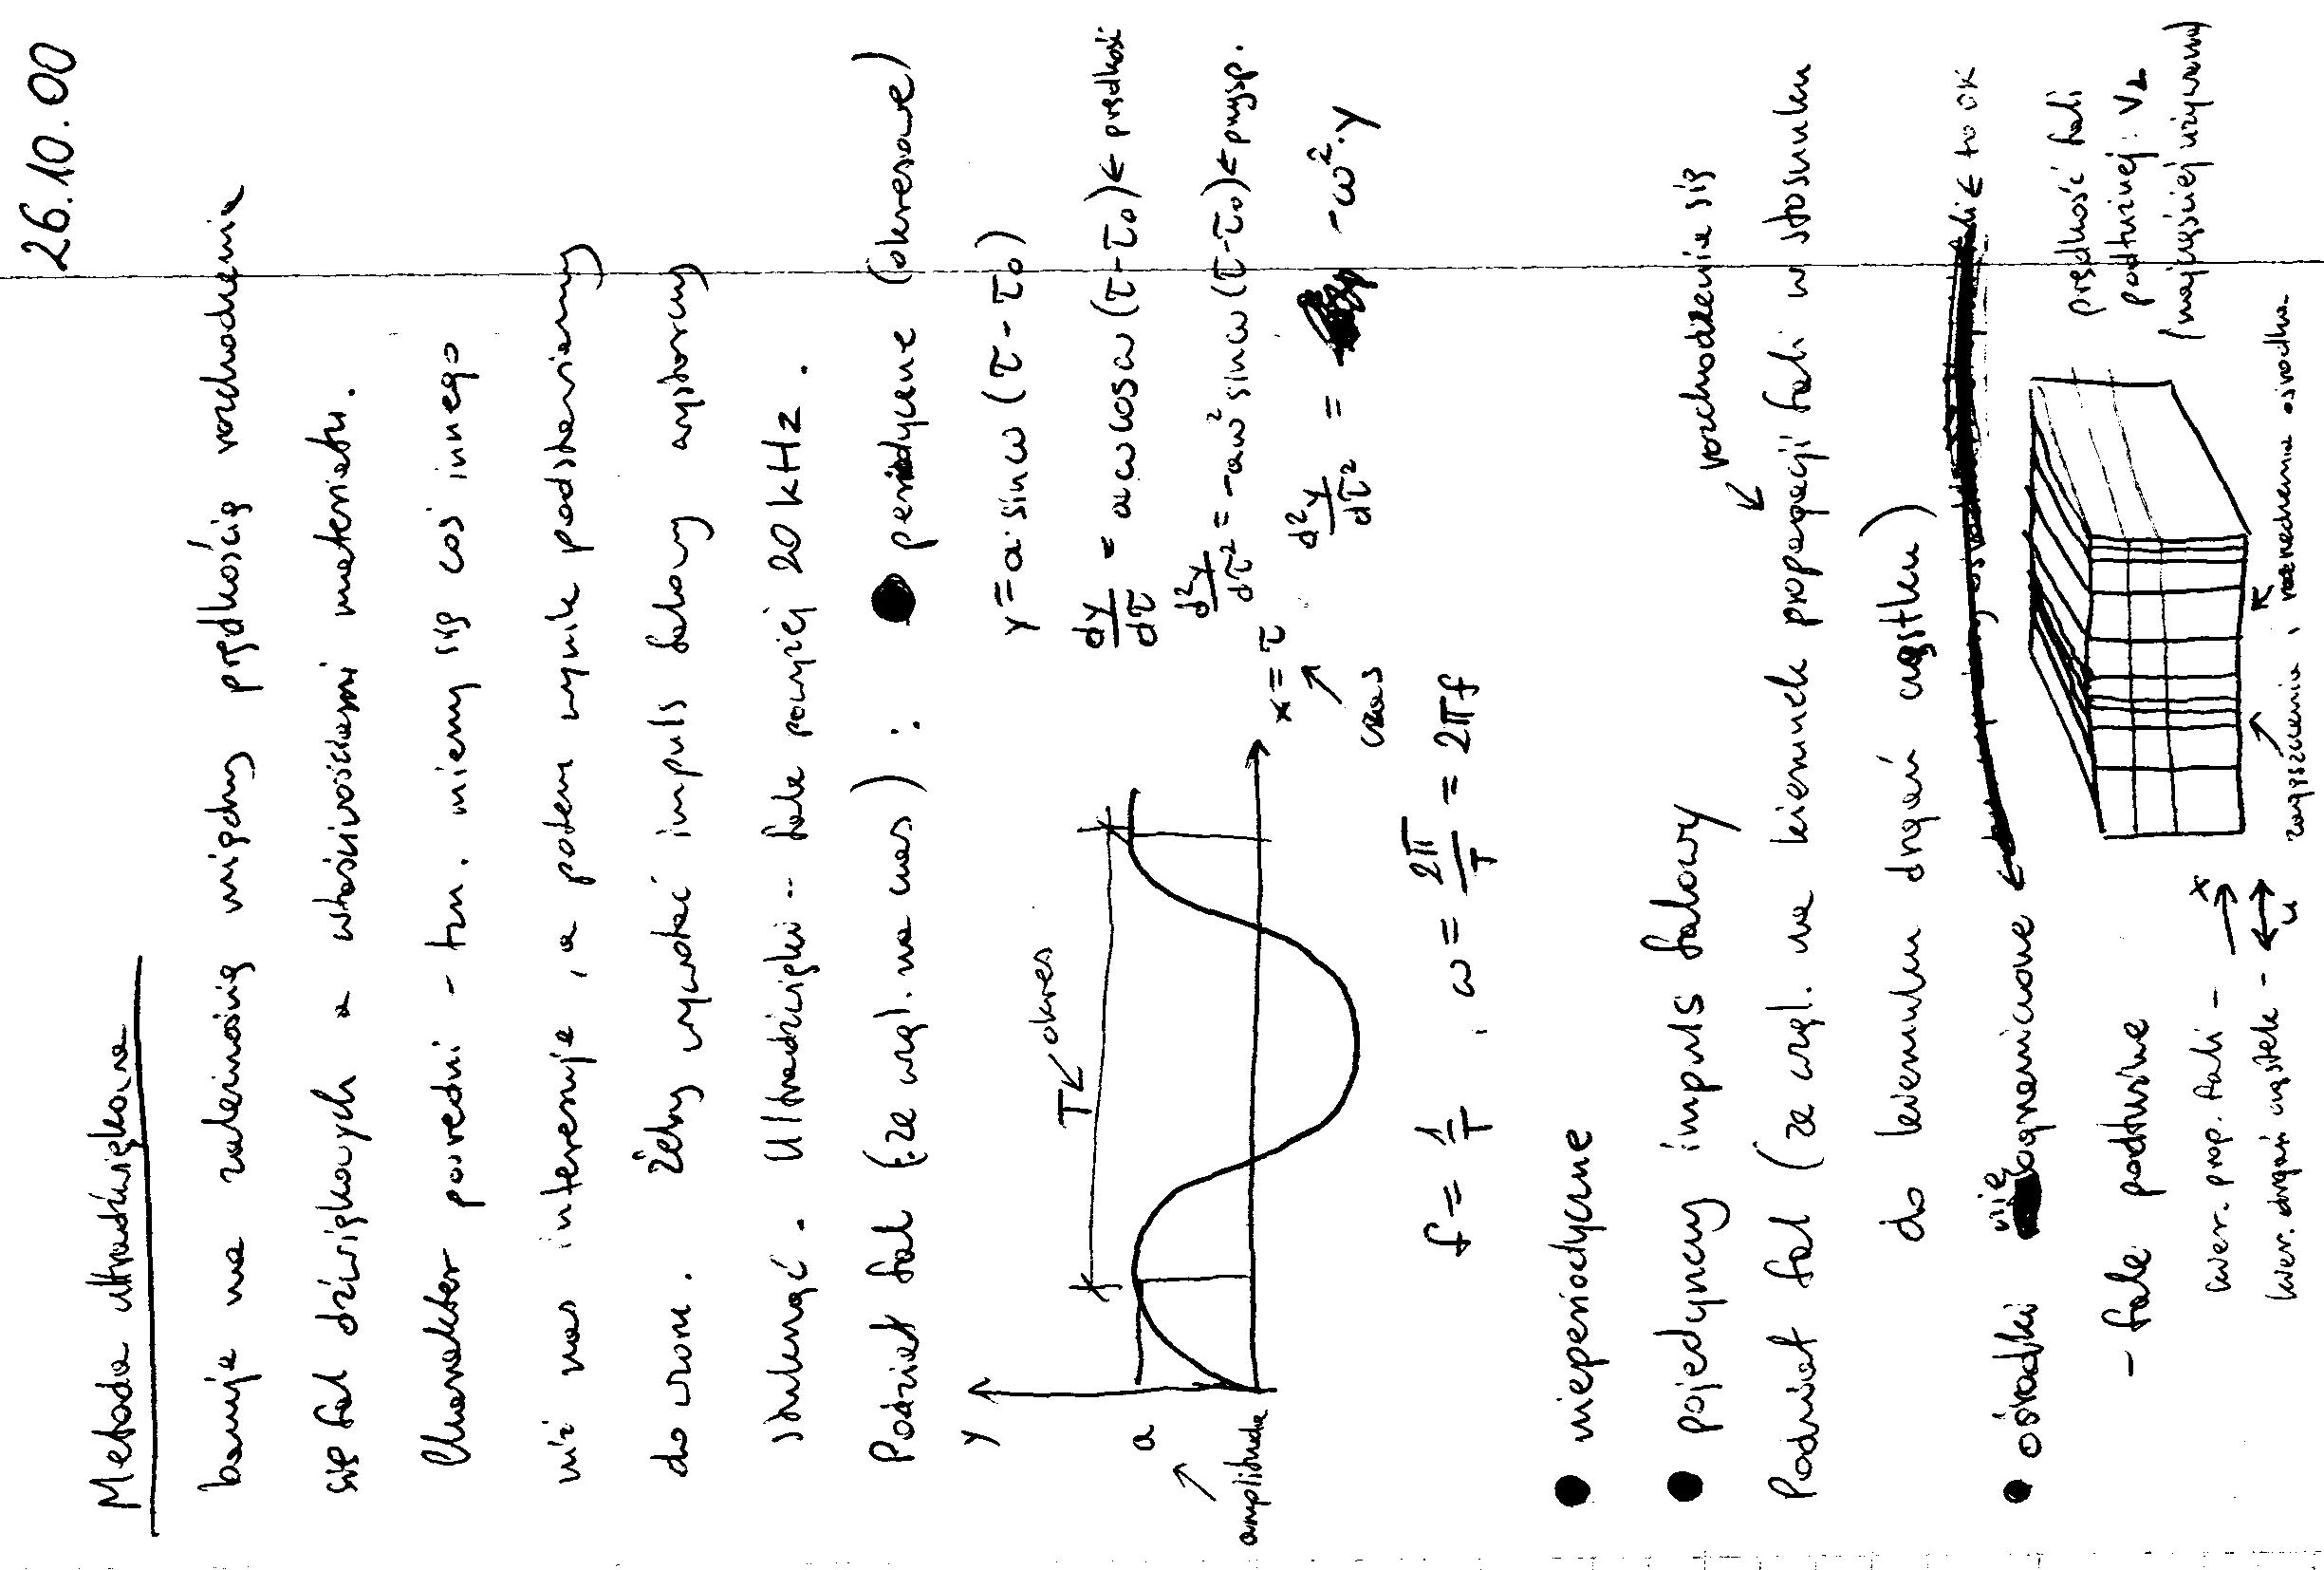 26.10.00
Metoda ultradźwiękowa
bazuje na zależnością między prędkością rozchodzenia
się fal dźwiękowych a właściwościami materiału.
Charakter pośredni - tzn. mierzymy się coś innego
niż nas interesuje, a potem wynik podstawiamy
do wzoru. Żeby wywołać impuls falowy wystarczy
stuknąć. Ultradźwięki - fale powyżej 20 kHz.
Podział fal (ze wzgl. na czas):
● periodyczne (okresowe)
y = a·sinω(τ-τ₀)
dy/dτ = aωcosω(τ-τ₀) ← prędkość
d²y/dτ² = -aω²sinω(τ-τ₀) ← przysp.
d²y/dτ² = -ω²·y
y
a
amplituda
T
okres
x = τ
czas
f = 1/T , ω = 2π/T = 2πf
● nieperiodyczne
● pojedynczy impuls falowy
rozchodzenie się
Podział fal (ze wzgl. na kierunek propagacji fali w stosunku
do kierunku drgań cząstki)
● ośrodki nieograniczone ← to OK
- fale podłużne
kier. prop. fali - x
kier. drgań cząstek - u
zagęszczenia i rozrzedzenia ośrodka
prędkość fali
podłużnej: V_L
(najczęściej używana)